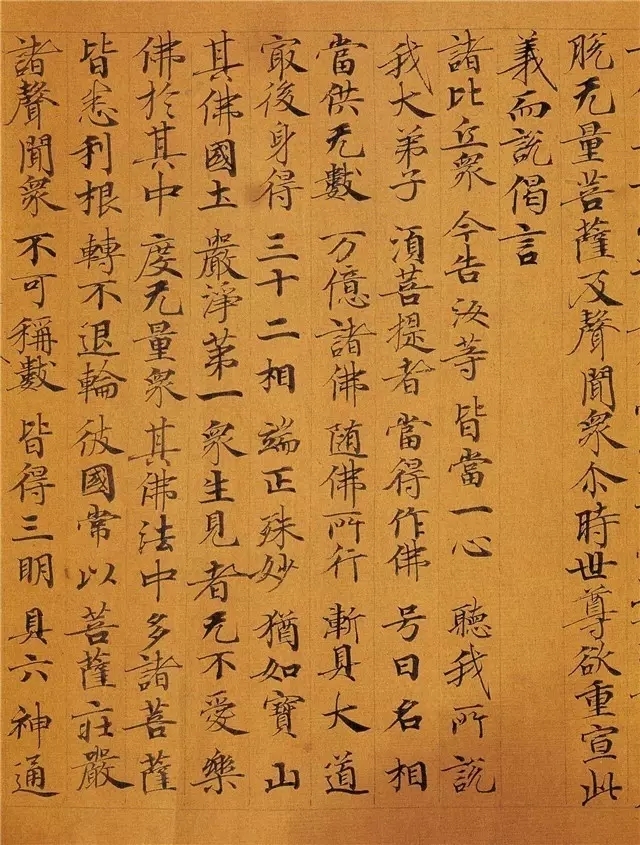 脫无量菩薩及聲聞衆尒時世尊欲重宣此
義而說偈言
諸比丘衆 今告汝等 皆當一心 聽我所說
我大弟子 湏菩提者 當得作佛 号曰名相
當供无數 万億諸佛 随佛所行 漸具大道
冣後身得 三十二相 端正殊妙 猶如寶山
其佛國土 嚴淨第一 衆生見者 无不愛樂
佛於其中 度无量衆 其佛法中 多諸菩薩
皆悉利根 轉不退輪 彼國常以 菩薩莊嚴
諸聲聞衆 不可稱數 皆得三明 具六神通